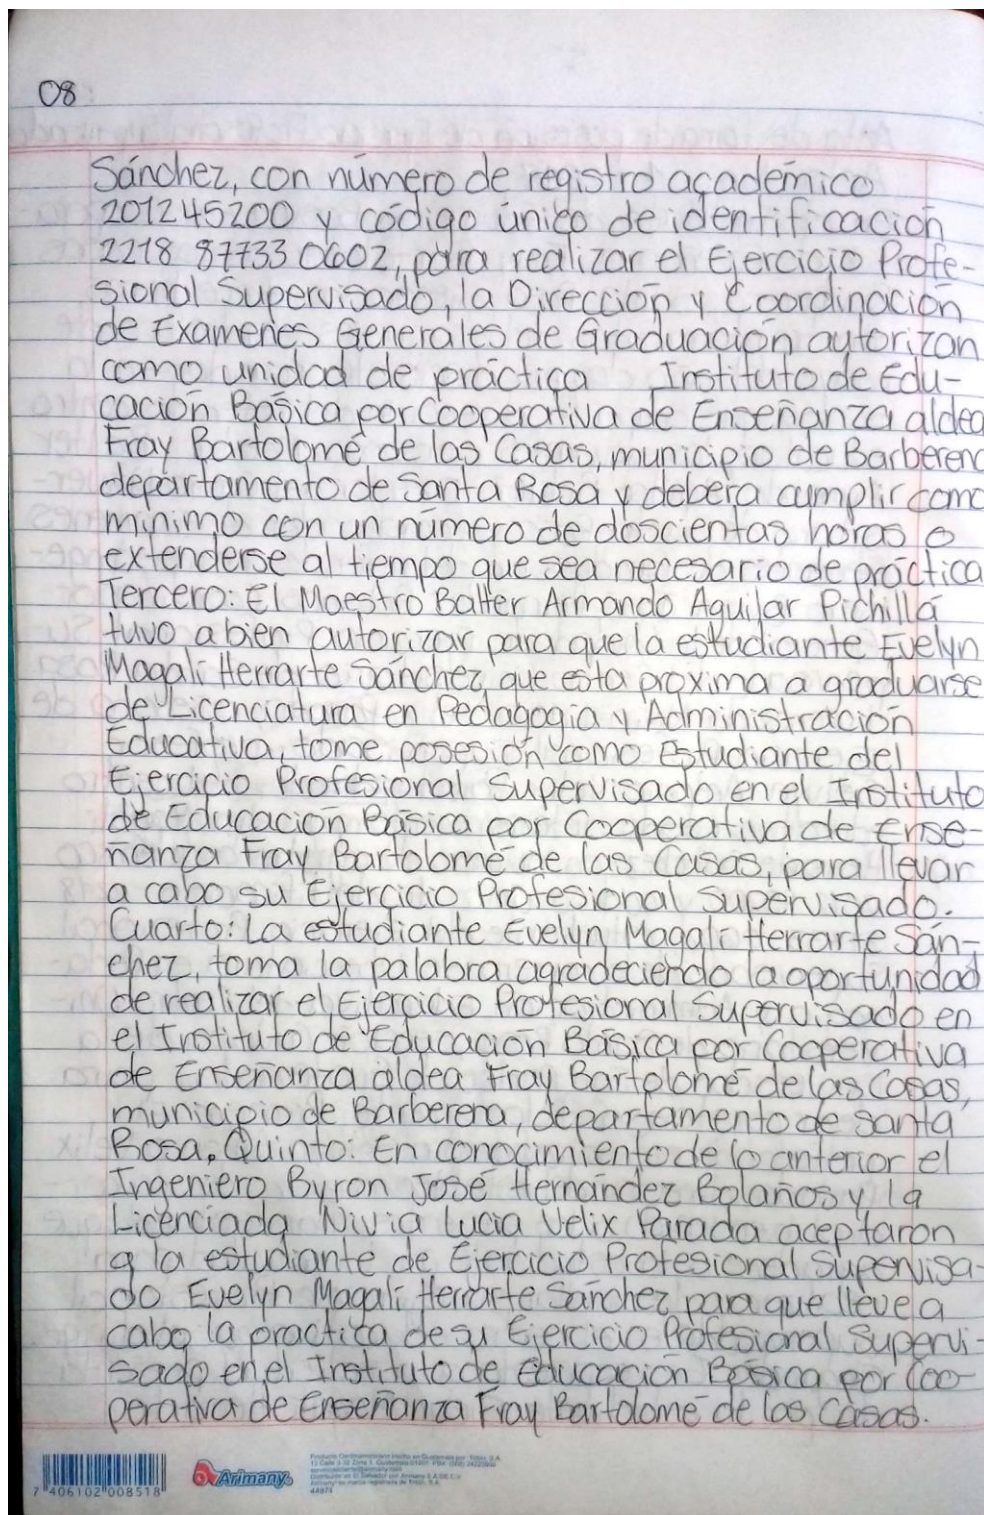 08
Sánchez, con número de registro académico
201245200 y código único de identificación
2218 87733 0602, para realizar el Ejercicio Profe-
sional Supervisado, la Dirección y Coordinación
de Examenes Generales de Graduación autorizan
como unidad de práctica Instituto de Edu-
cación Básica por Cooperativa de Enseñanza aldea
Fray Bartolomé de las Casas, municipio de Barberena
departamento de Santa Rosa y debera cumplir como
mínimo con un número de doscientas horas o
extenderse al tiempo que sea necesario de práctica
Tercero: El Maestro Balter Armando Aguilar Pichillá
tuvo a bien autorizar para que la estudiante Evelyn
Magalí Herrarte Sánchez, que esta proxima a graduarse
de Licenciatura en Pedagogía y Administración
Educativa, tome posesión como Estudiante del
Ejercicio Profesional Supervisado en el Instituto
de Educación Básica por Cooperativa de Ense-
ñanza Fray Bartolomé de las Casas, para llevar
a cabo su Ejercicio Profesional Supervisado.
Cuarto: La estudiante Evelyn Magalí Herrarte Sán-
chez, toma la palabra agradeciendo la oportunidad
de realizar el Ejercicio Profesional Supervisado en
el Instituto de Educación Básica por Cooperativa
de Enseñanza aldea Fray Bartolomé de las Casas,
municipio de Barberena, departamento de Santa
Rosa. Quinto: En conocimiento de lo anterior el
Ingeniero Byron José Hernández Bolaños y la
Licenciada Nivia Lucia Velix Parada aceptaron
a la estudiante de Ejercicio Profesional Supervisa-
do Evelyn Magalí Herrarte Sánchez para que lleve a
cabo la practica de su Ejercicio Profesional Supervi-
sado en el Instituto de Educación Básica por Coo-
perativa de Enseñanza Fray Bartolomé de las Casas.
7 406102 008518
Arimany